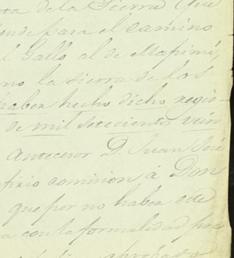 ra de la Sierra que
onde para el camino
l Gallo al de Mapimí,
mo la sierra de los
haber hecho dicho regis-
de mil setecientos vein
antecesor D. Juan José
firio comision á Don
que por no haber
a con la formalidad